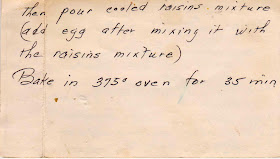 then pour cooled raisins mixture
(add egg after mixing it with
the raisins mixture)
Bake in 375° oven for 35 min